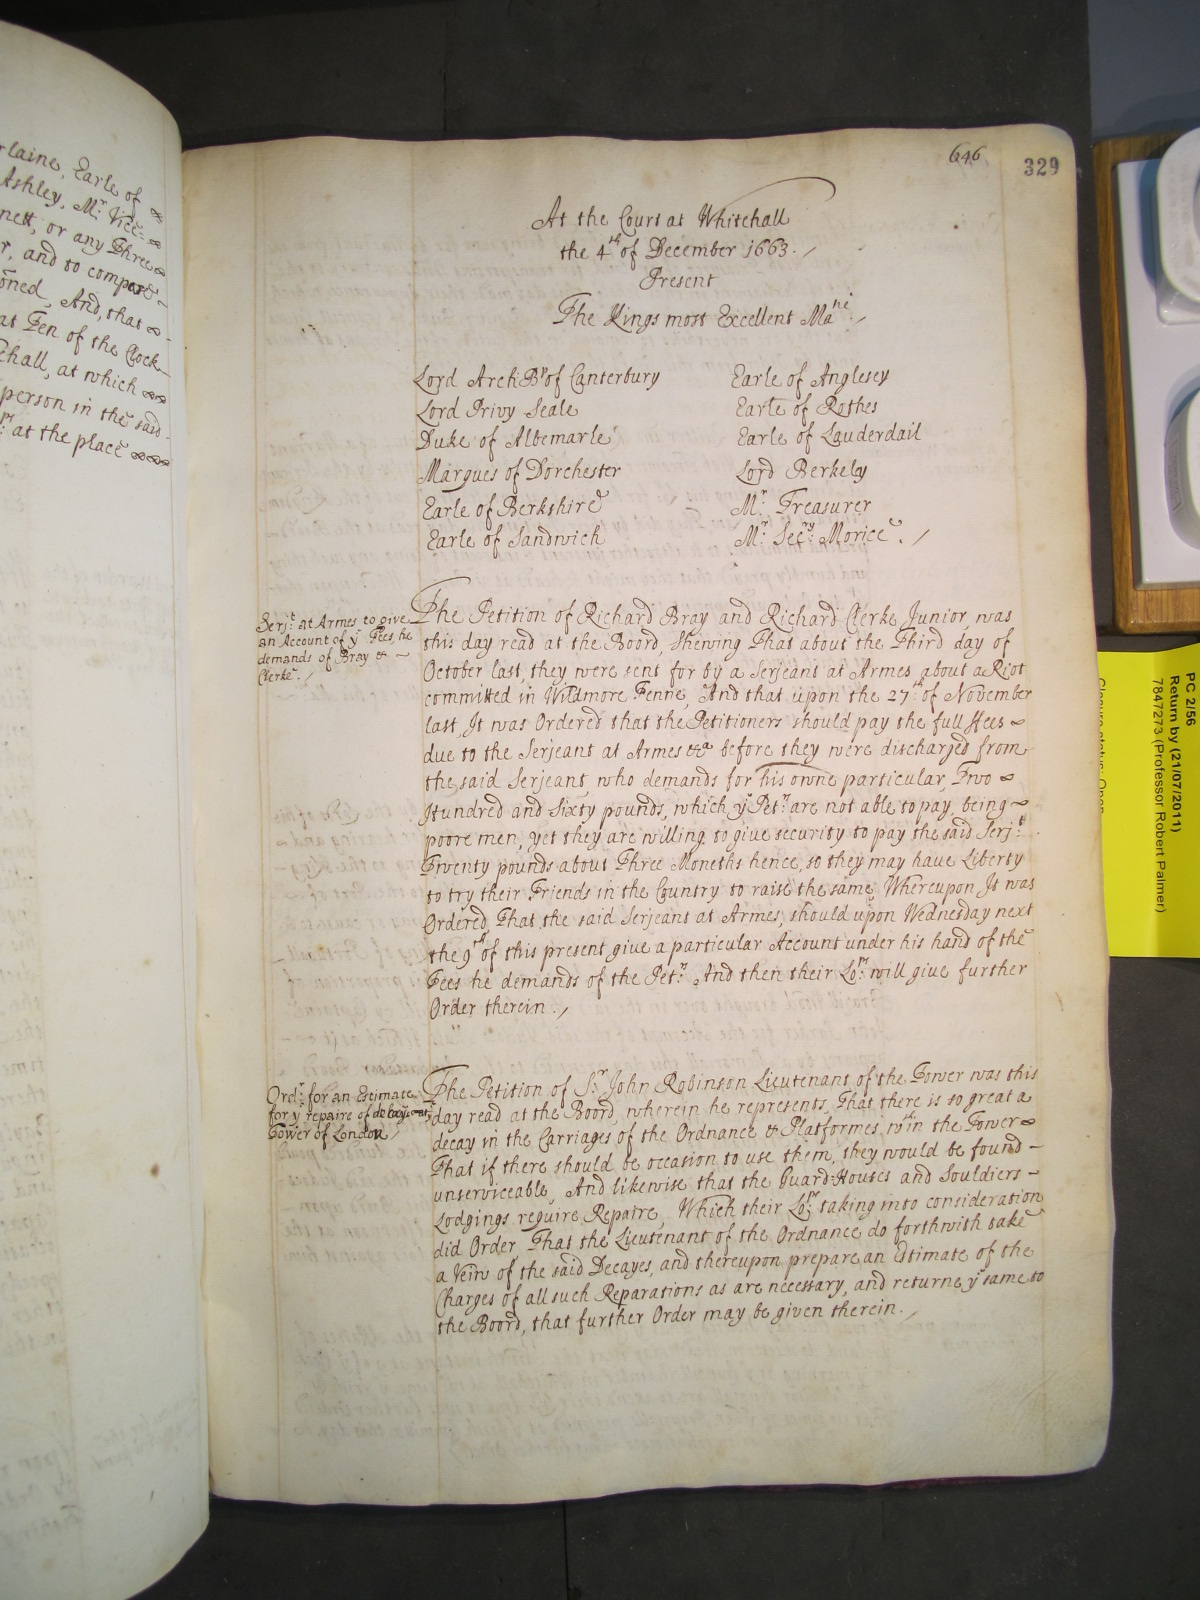 rlaine, Earle of
Ashley, Mr. Vice-
nett, or any Three
r, and to compose
oned, And, that
at Ten of the Clock
ehall, at which
person in the said
rs: at the place
646
329
At the Court at Whitehall
the 4th of December 1663.
Present
The Kings most Excellent Matie
Lord ArchBp of Canterbury
Lord Privy Seale
Duke of Albemarle
Marques of Dorchester
Earle of Berkshire
Earle of Sandwich
Earle of Anglesey
Earle of Rothes
Earle of Lauderdail
Lord Berkely
Mr. Treasurer
Mr. Secry. Morice.
Serjt. at Armes to give
an Account of ye Fees, he
demands of Bray &
Clerke.
The Petition of Richard Bray and Richard Clerke Junior, was
this day read at the Boord, Shewing That about the Third day of
October last, they were sent for by a Serjeant at Armes about a Riot
committed in Wildmore Fenne, And that upon the 27th of November
last, It was Ordered that the Petitioners should pay the full ffees
due to the Serjeant at Armes &ca before they were discharged from
the said Serjeant, who demands for his owne particular, Two
Hundred and Sixty pounds, which ye Petrs. are not able to pay, being
poore men, yet they are willing to give security to pay the said Serjt.
Twenty pounds about Three Moneths hence, so they may have Liberty
to try their Friends in the Country to raise the same, Whereupon It was
Ordered, That the said Serjeant at Armes, should upon Wednesday next
the 9th of this present, give a particular Account under his hand of the
Fees he demands of the Petrs. And then their Lops. will give further
Order therein.
Ordr. for an Estimate
for ye repaire of decays at
Tower of London
The Petition of Sr. John Robinson Lieutenant of the Tower was this
day read at the Boord, wherein he represents, That there is so great a
decay in the Carriages of the Ordnance & Platformes wth in the Tower
That if there should be occasion to use them, they would be found
unserviceable, And likewise that the Guard-Houses and Souldiers
Lodgings require Repaire, Which their Lops. taking into consideration
did Order That the Lieutenant of the Ordnance do forthwith take
a Veiw of the said Decayes, and thereupon prepare an Estimate of the
Charges of all such Reparations as are necessary, and returne ye same to
the Boord, that further Order may be given therein.
PC 2/56
Return by (21/07/2011)
7847273 (Professor Robert Palmer)
Closure status: Open